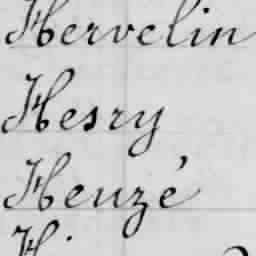 Hervelin
Hesry
Heuzé